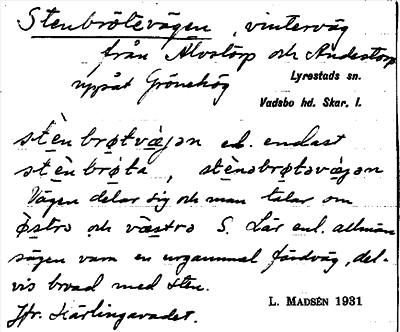 Stenbrötevägen, vinterväg
från Alvstorp och Anderstorp
uppåt Grönehög
Lyrestads sn.
Vadsbo hd. Skar. l.
stènbrøtvæ̀jən el. endast
stènbrøta, stènəbrøtəvæ̀jən
Vägen delar sig och man talar om
østrə och væstrə S. Lär enl. allmän
sägen vara en urgammal färdväg, del-
vis broad med sten.
Jfr. Kärlingavadet.
L. MADSÉN 1931